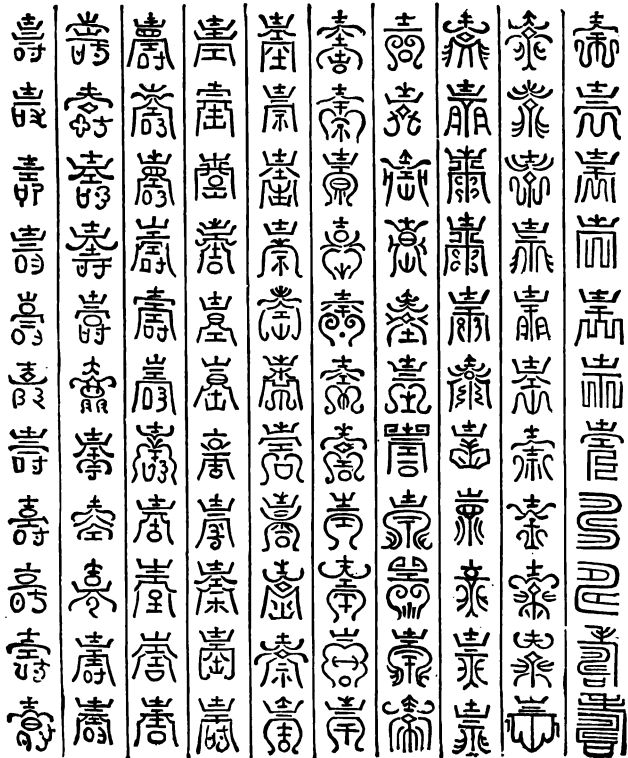 壽壽壽壽壽壽壽壽壽壽壽
壽壽壽壽壽壽壽壽壽壽壽
壽壽壽壽壽壽壽壽壽壽壽
壽壽壽壽壽壽壽壽壽壽壽
壽壽壽壽壽壽壽壽壽壽壽
壽壽壽壽壽壽壽壽壽壽壽
壽壽壽壽壽壽壽壽壽壽壽
壽壽壽壽壽壽壽壽壽壽壽
壽壽壽壽壽壽壽壽壽壽壽
壽壽壽壽壽壽壽壽壽壽壽